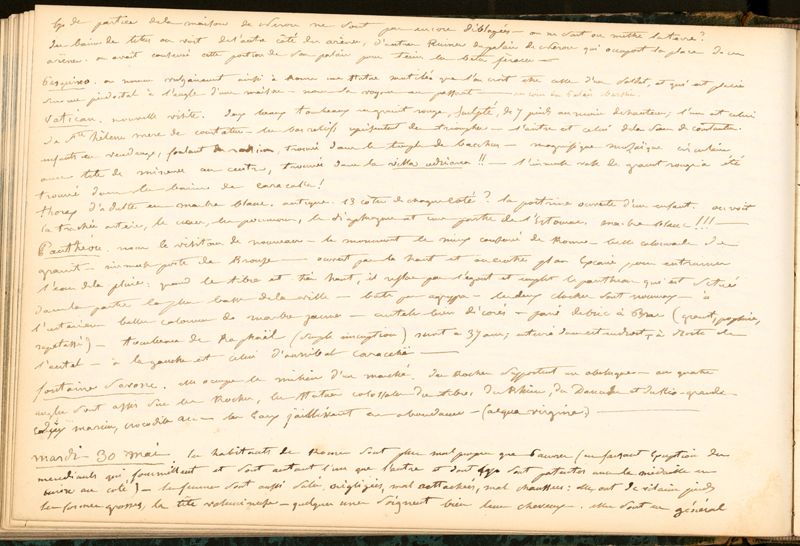 de partie de la maison de Néron ne sont pas encore déblayées — on ne sait où mettre la terre?
Des bains de titus on voit de l'autre côté des arènes, d'autres Ruines du palais de Néron qui occupait la place de ces
arènes. on avait conservé cette portion de son palais pour tenir les bêtes féroces —
Pasquino. on nomme vulgairement ainsi à Rome une statue mutilée que l'on croit être celle d'un soldat, et qui est placée
sur un piédestal à l'angle d'une maison — nous la voyons en passant —
Vatican. nouvelle visite. Deux beaux tombeaux en granit rouge, sculptés, de 7 pieds au moins de hauteur; l'un est celui
de Ste hélène mère de constantin — les bas reliefs représentent des triomphes — l'autre est celui de la Sœur de constantin.
enfants en vendanges, foulant le raisin, trouvé dans le temple de bacchus — magnifique mozaïque circulaire
avec tête de minerve au centre, trouvée dans la villa adriana!! — l'immense vase de granit rouge a été
trouvé dans les bains de caracalla!
thorax d'adulte en marbre blanc. antique. 13 côtes de chaque côté? la poitrine ouverte d'un enfant. on voit
la trachée artère, le cœur, les poumons, le diaphragme et une partie de l'estomac. marbre blanc!!! —
Panthéon. nous le visitons de nouveau — le monument le mieux conservé de Rome — belle colonnade de
granit — immense porte de Bronze — ouvert par le haut et au centre plan pour entrainer
l'eau de la pluie: quand le tibre est très haut, il reflue par l'égout et remplit le pantheon qui est situé
dans la partie la plus basse de la ville — bâti par agrippa — les deux clochers sont nouveaux — à
l'intérieur belles colonnes de marbre jaune — autels bien décorés — pavé de bric à Brac (granit, porphire,
rapetassé) — tombeau de Raphaël (simple inscription) mort à 37 ans; enterré dans cet endroit, à droite de
l'autel — à la gauche est celui d'annibal caracche —
fontaine Navone. elle occupe le milieu d'un marché. Des Rochers supportent un obélisque — aux quatre
angles sont assis sur les Rochers, les statues colossales du tibre, du Rhin, du Danube et du Rio-grande
marins, crocodiles &c — les Eaux jaillissent en abondance — (acqua virgine) —
mardi 30 mai. les habitants de Rome sont plus malpropres que pauvres (en faisant exception des
mendiants qui fourmillent et sont autant l'un que l'autre et dont sont patentés avec la médaille en
cuivre au côté) — les femmes sont aussi sales, négligées, mal attachées, mal chaussées: elles ont de vilains pieds
les formes grosses, la tête volumineuse — quelques unes soignent bien leurs cheveux. elles sont en général